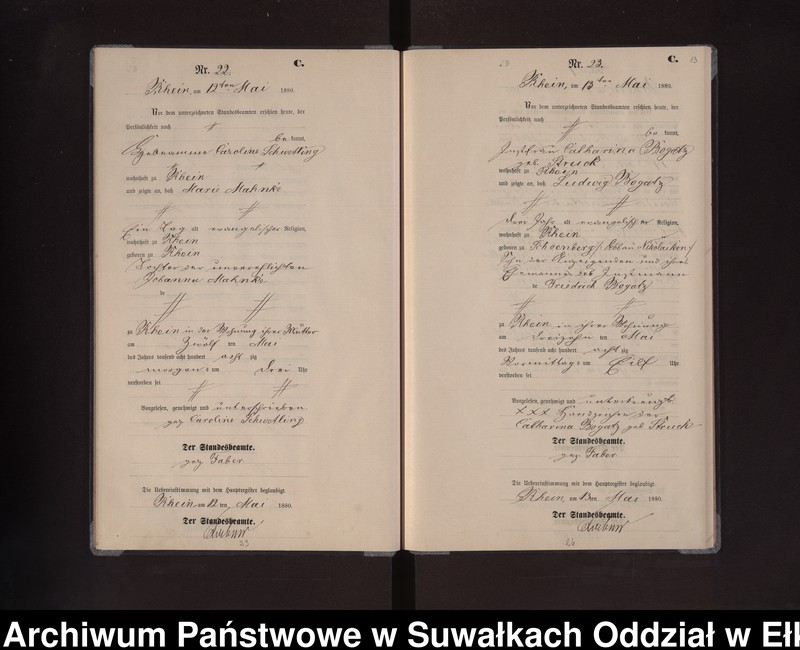 C.
Nr. 22.
Rhein, am 12ten Mai 1880.
Vor dem unterzeichneten Standesbeamten erschien heute, der
Persönlichkeit nach
be kannt,
Hebeamme Caroline Schwetling
wohnhaft zu Rhein
und zeigte an, daß Marie Mahnke
Ein Tag alt evangelischer Religion,
wohnhaft zu Rhein
geboren zu Rhein
Tochter der unverehelichten
Johanna Mahnke
zu Rhein in der Wohnung ihrer Mutter
am Zwölf ten Mai
des Jahres tausend acht hundert acht zig
morgens um drei Uhr
verstorben sei
Vorgelesen, genehmigt und unterschrieben
gez Caroline Schwetling
Der Standesbeamte.
gez Faber
Die Uebereinstimmung mit dem Hauptregister beglaubigt.
Rhein, am 12 ten Mai 1880.
Der Standesbeamte.
C.
13
Nr. 23.
Rhein, am 13ten Mai 1880.
Vor dem unterzeichneten Standesbeamten erschien heute, der
Persönlichkeit nach
be kannt,
Instfrau Catharina Bogatz
geb. Struck
wohnhaft zu Rhein
und zeigte an, daß Ludwig Bogatz
drei Jahr alt evangelischer Religion,
wohnhaft zu Rhein
geboren zu Schoenberg Nikolaiken
Sohn der Anzeigenden und ihres
Ehemannes des Instmann
Friedrich Bogatz
zu Rhein in ihrer Wohnung
am dreizehn ten Mai
des Jahres tausend acht hundert acht zig
Vormittags um Eilf Uhr
verstorben sei
Vorgelesen, genehmigt und unterkreuzt
XXX Handzeichen der
Catharina Bogatz geb Struck
Der Standesbeamte.
gez Faber
Die Uebereinstimmung mit dem Hauptregister beglaubigt.
Rhein, am 13 ten Mai 1880.
Der Standesbeamte.
Archiwum Państwowe w Suwałkach Oddział w Ełk